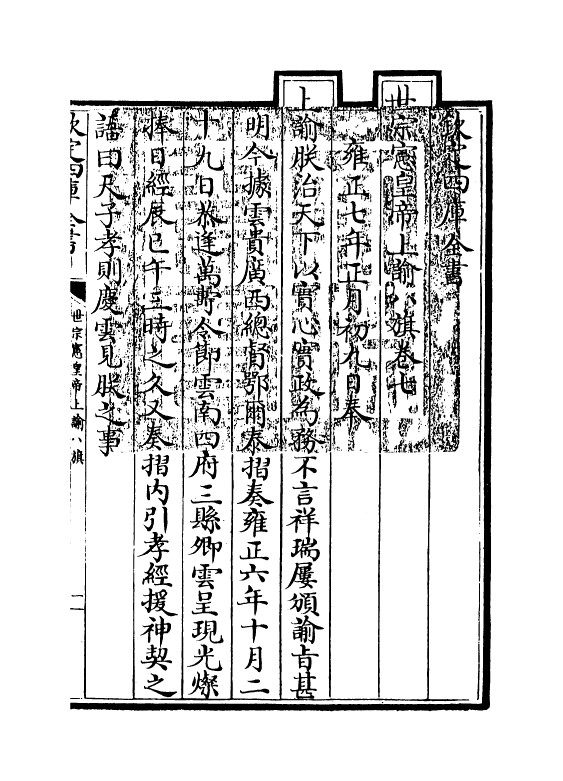 欽定四庫全書
世宗憲皇帝上諭八旗卷七
雍正七年正月初九日奉
上諭朕治天下以實心實政為務不言祥瑞屢頒諭旨甚
明今據雲貴廣西總督鄂爾泰摺奏雍正六年十月二
十九日恭逢萬壽令節雲南四府三縣卿雲呈現光燦
捧日經辰巳午三時之久又奏摺内引孝經援神契之
語曰天子孝則慶雲見朕之事
欽定四庫全書
世宗憲皇帝上諭八旗
一